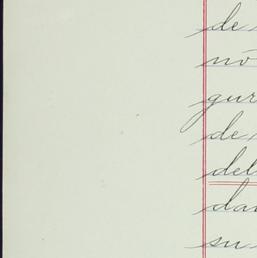 de
no
gur
de
del
dar
su